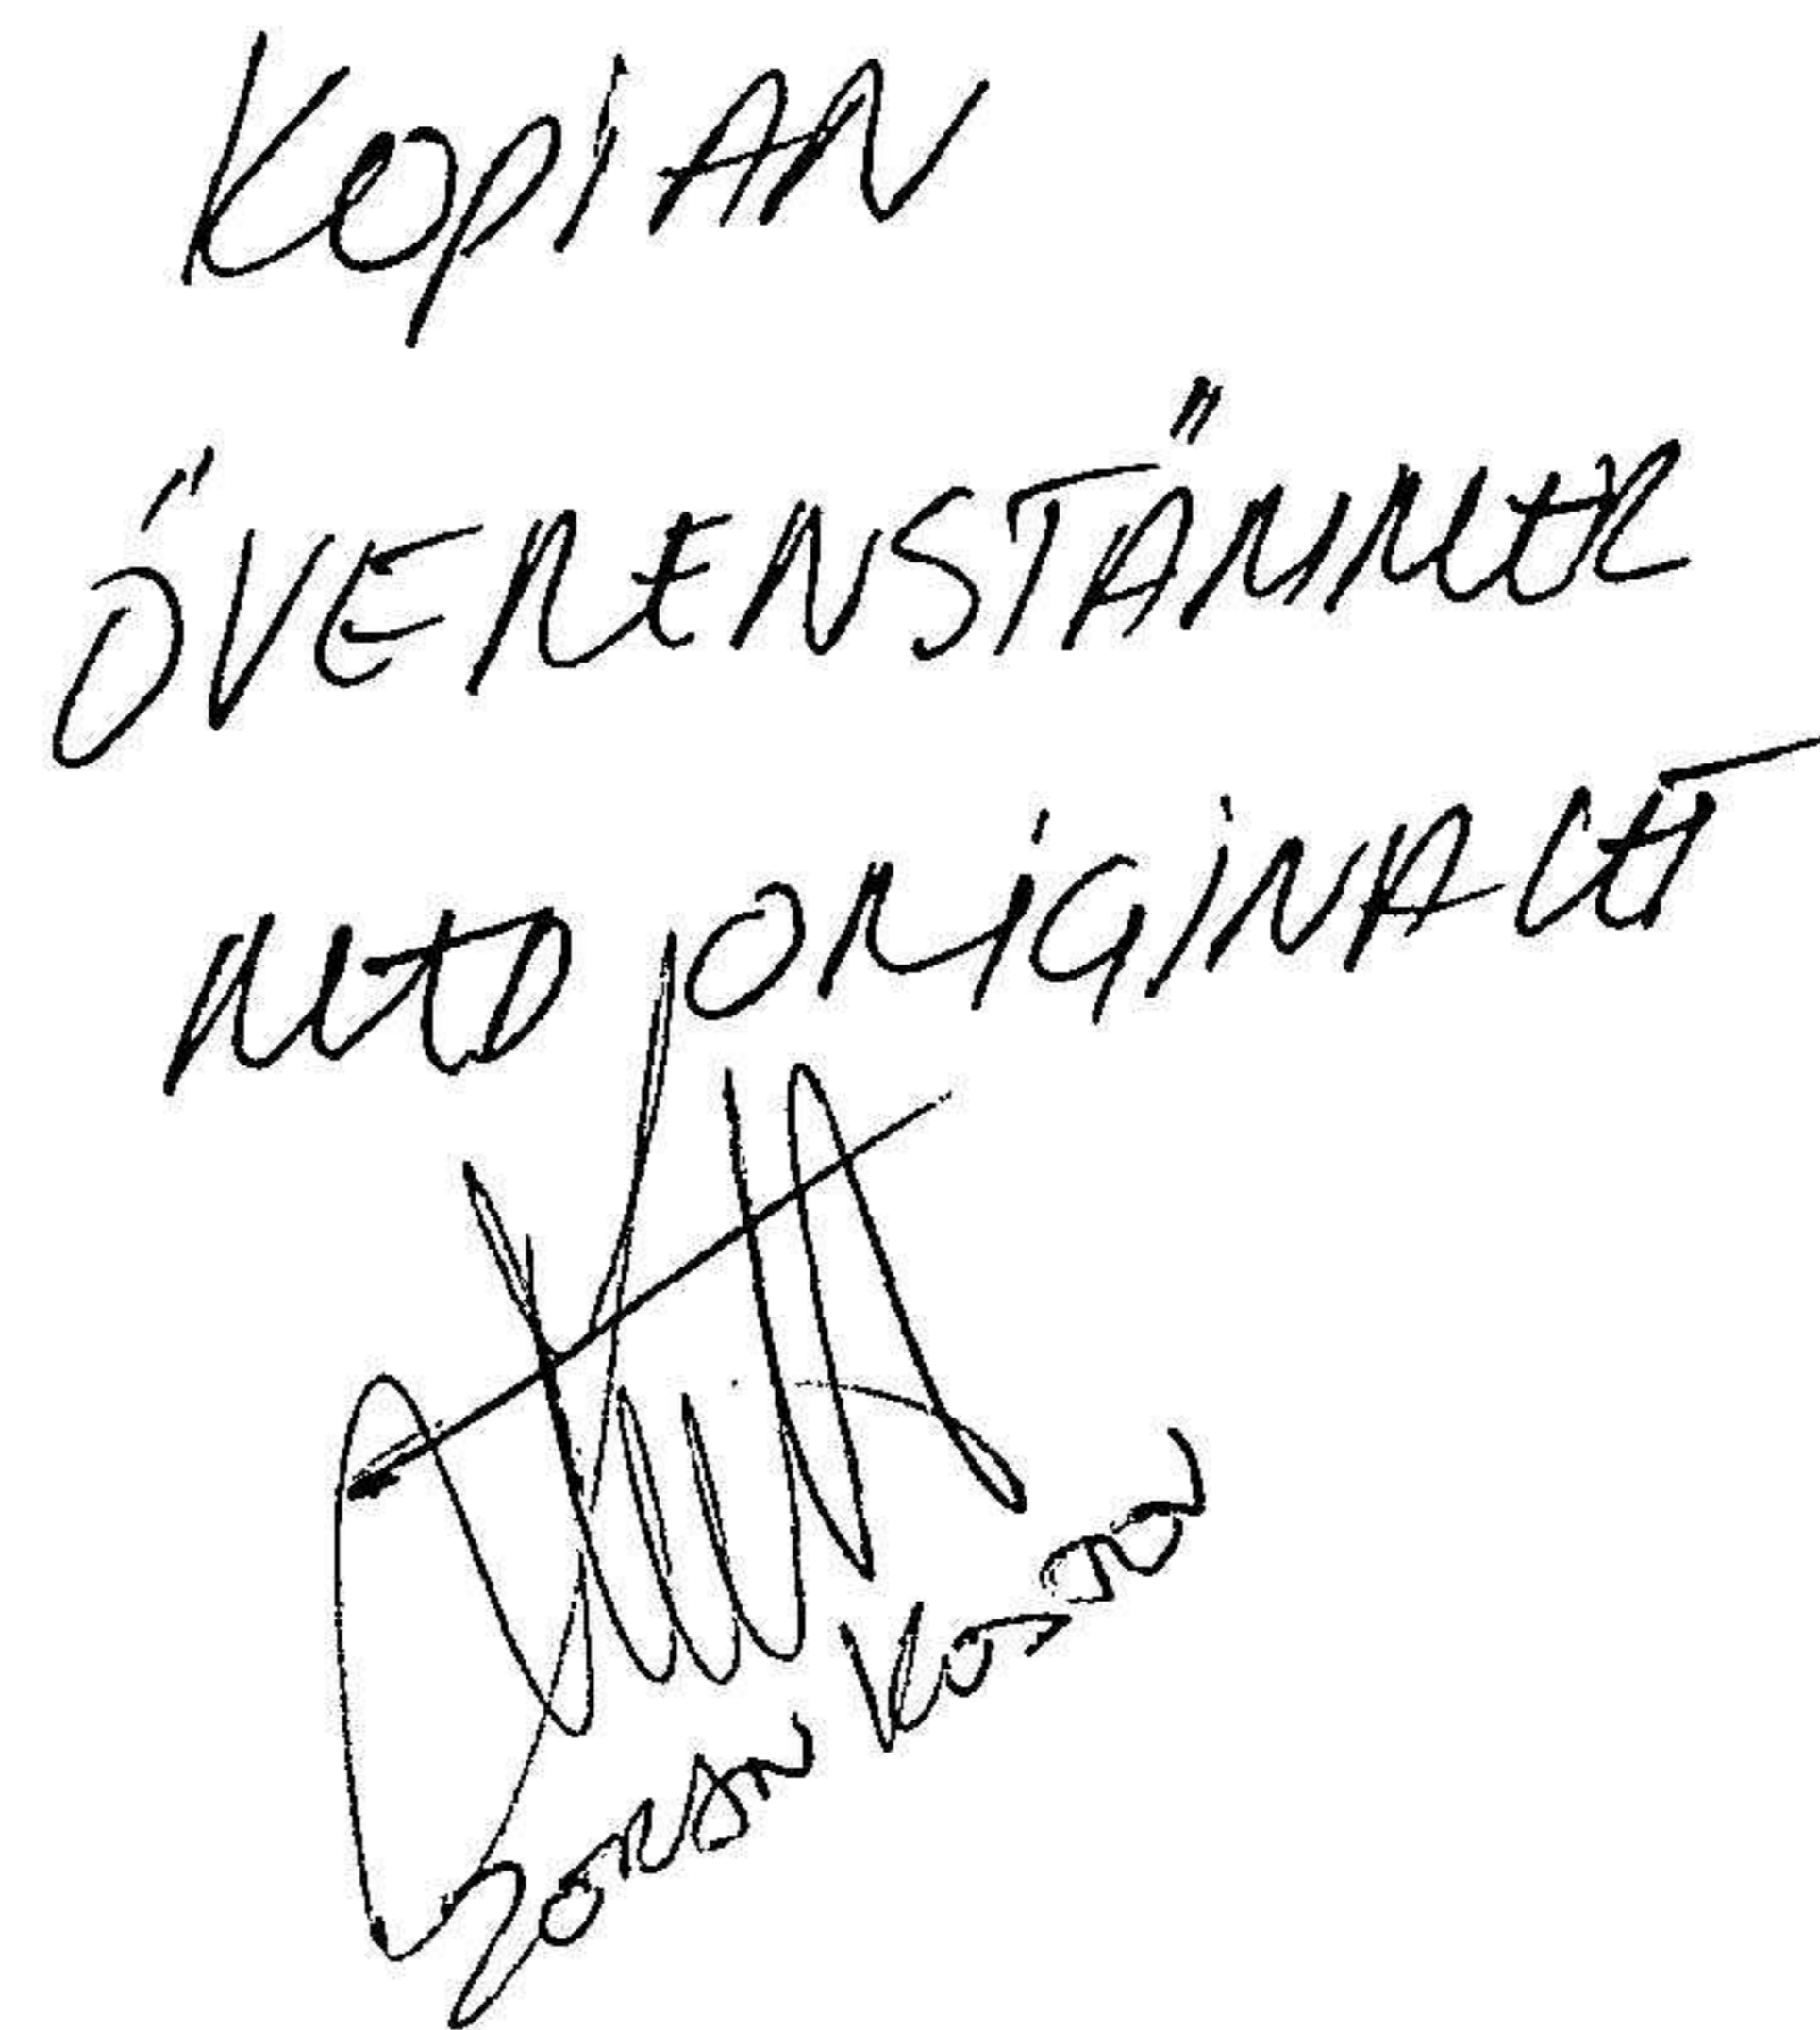 KOPIAN
ÖVERENSTÄMMER
MED ORIGINALET
ZORAN